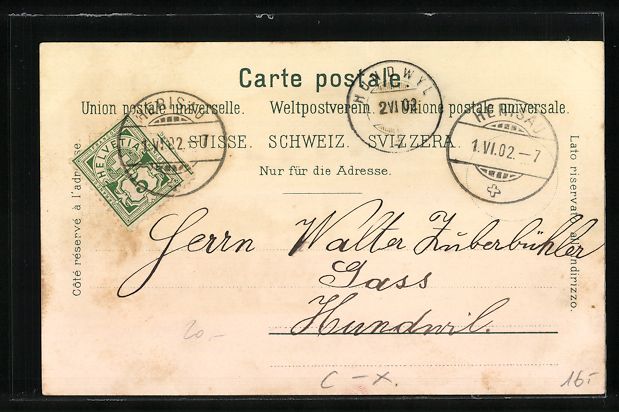 Carte postale.
Union postale universelle. Weltpostverein. Unione postale universale.
SUISSE. SCHWEIZ. SVIZZERA.
Nur für die Adresse.
Côté réservé à l'adresse.
Lato riservato all'indirizzo.
HERISAU
1.VI.02.-7
HUNDWYL
2 VI 02
HERISAU
1.VI.02.-7
HELVETIA
5
Herrn Walter Zuberbühler
Gass
Hundwil.
20.-
C - x.
16.-